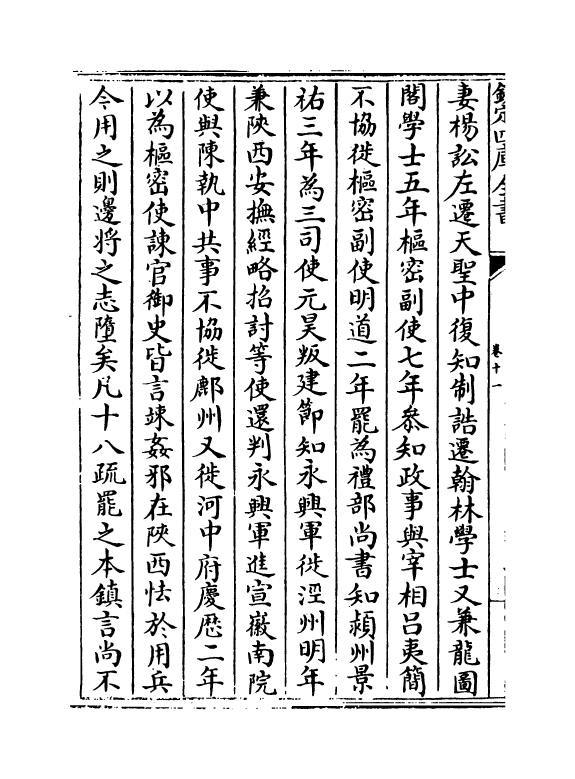 欽定四庫全書
卷十一
妻楊訟左遷天聖中復知制誥遷翰林學士又兼龍圖
閣學士五年樞密副使七年叅知政事與宰相吕夷簡
不協徙樞密副使明道二年罷為禮部尚書知潁州景
祐三年為三司使元昊叛建節知永興軍徙涇州明年
兼陜西安撫經略招討等使還判永興軍進宣徽南院
使與陳執中共事不協徙鄜州又徙河中府慶厯二年
以為樞密使諫官御史皆言竦姦邪在陜西怯於用兵
今用之則邊将之志墮矣凡十八疏罷之本鎮言尚不